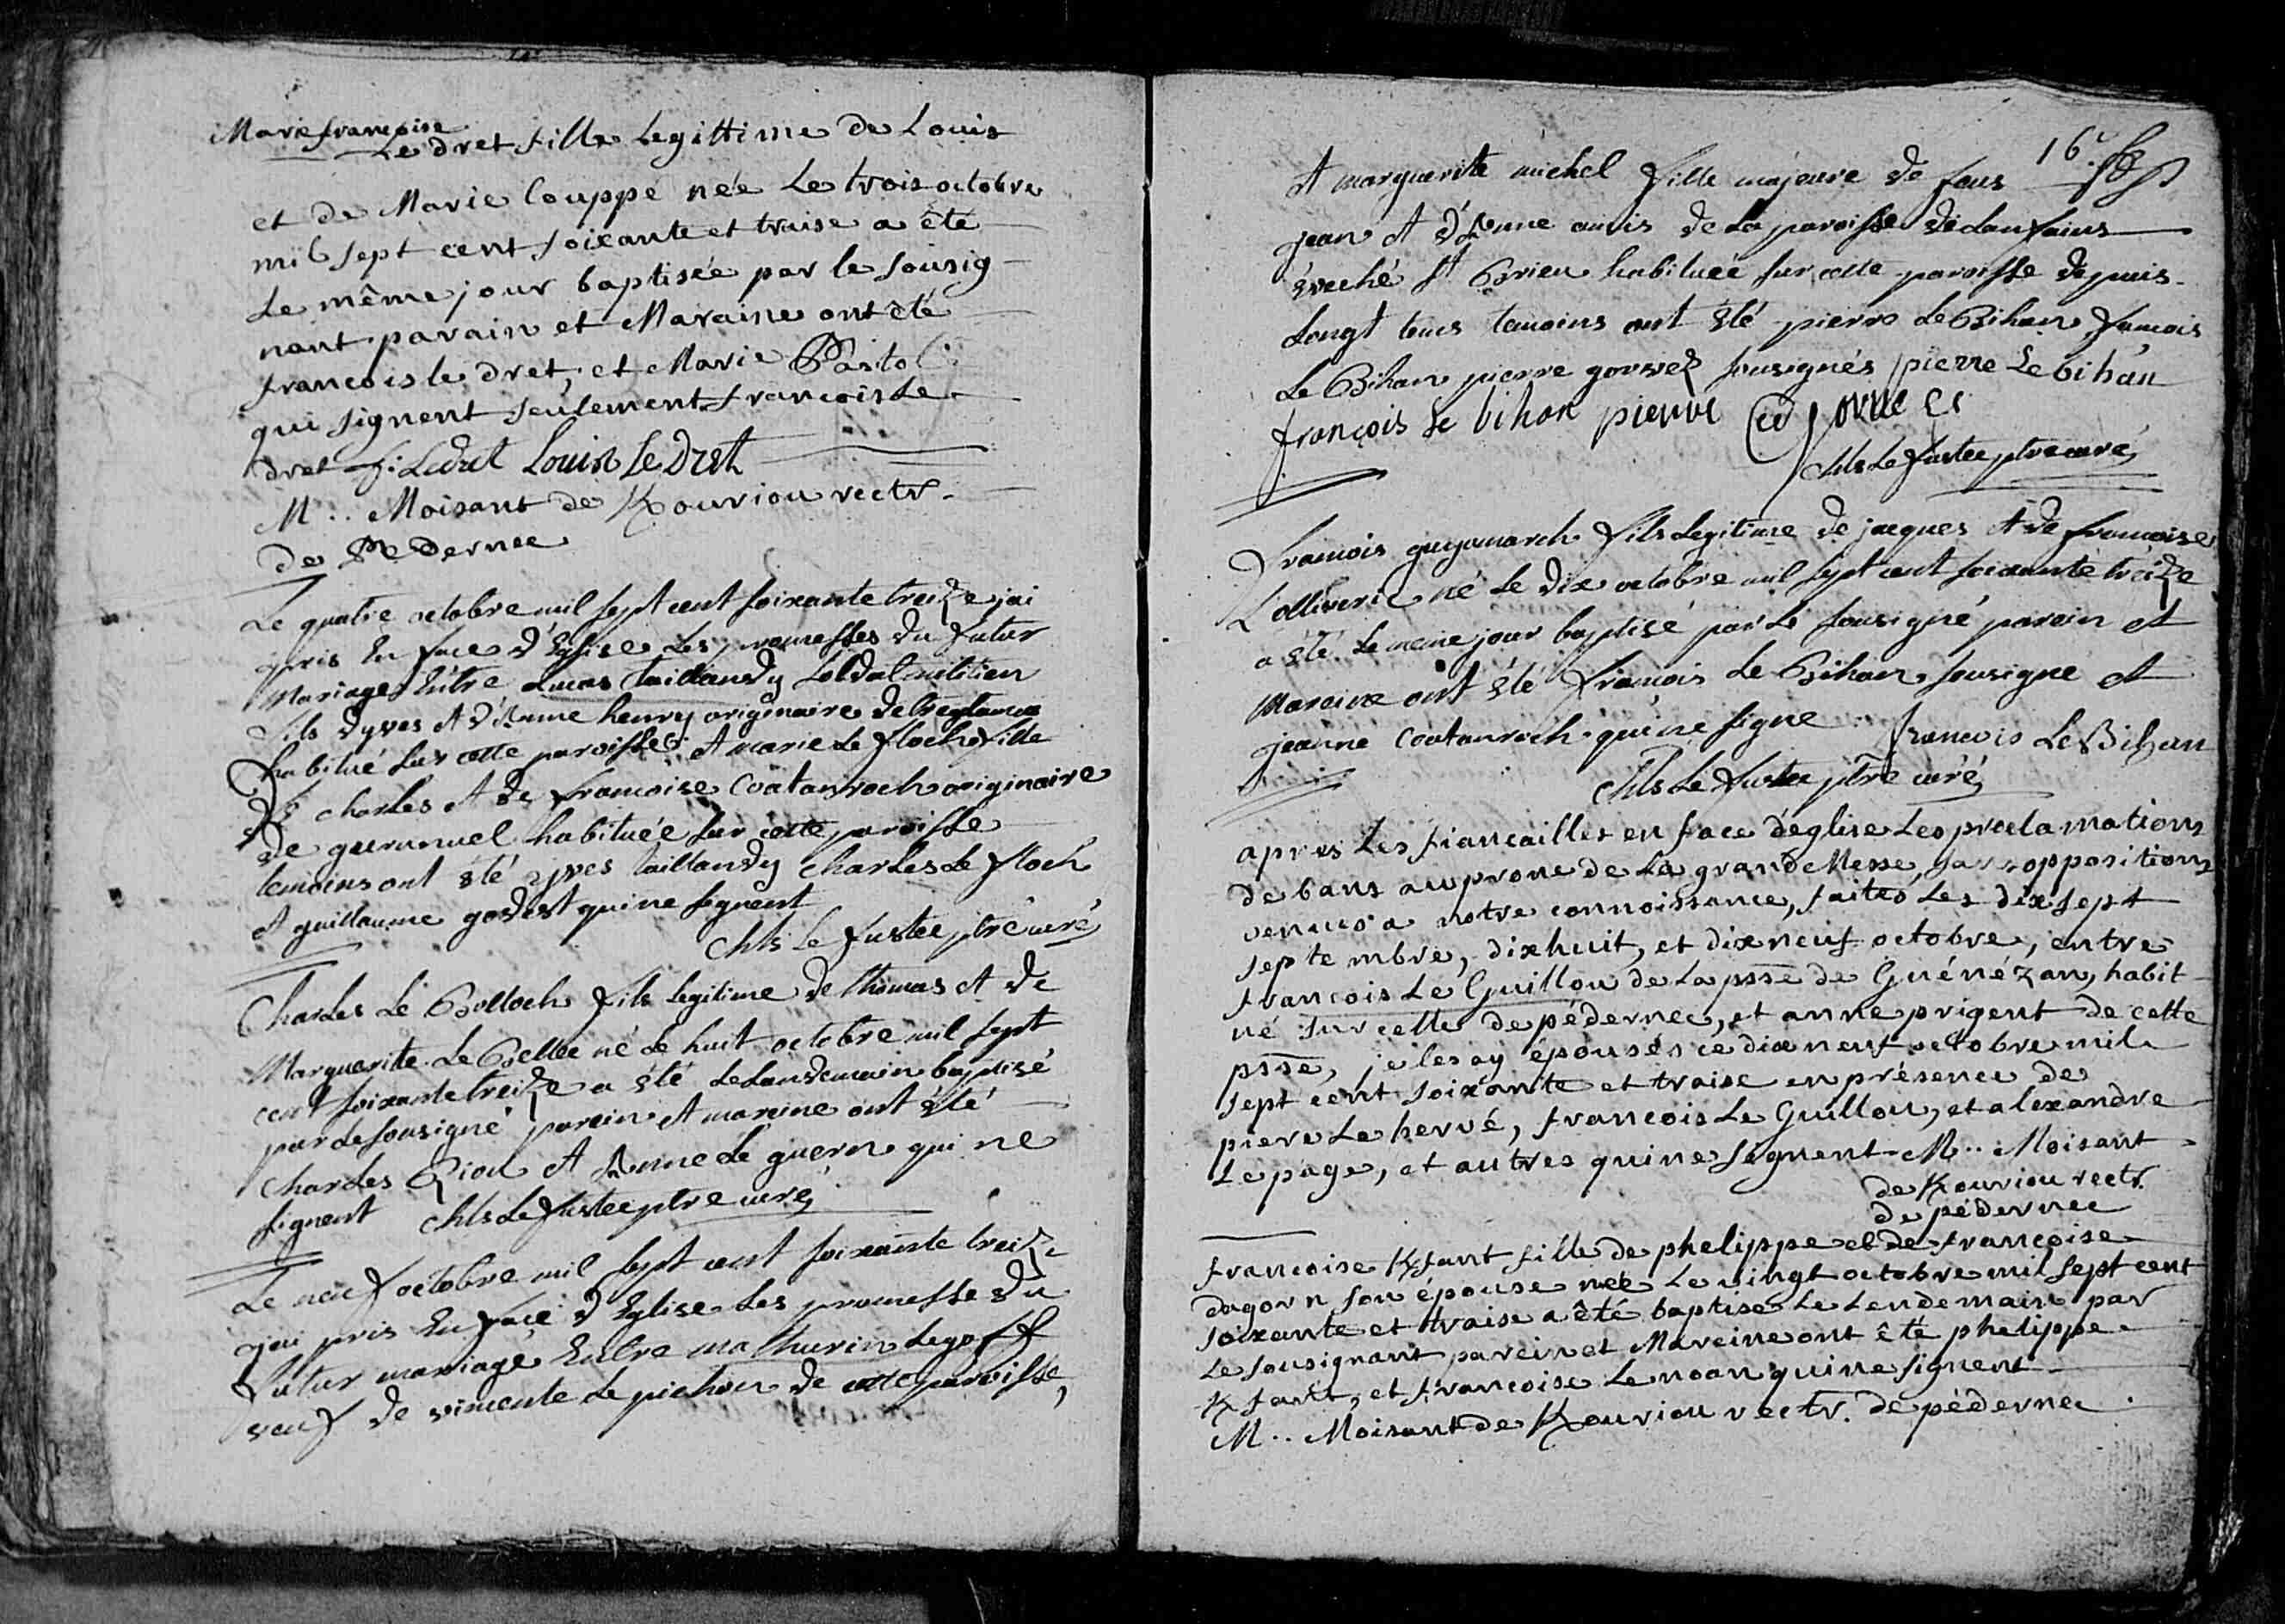 Marie françoise
Le dret fille Legittime de Louis
et de Marie Couppé née Le trois octobre
mil sept cent soixante et traise a été
Le même jour baptisée par le sousig
nant parain et Maraine ont été
francois le dret, et Marie Pasto
qui signent seulement francois Le
dret f: Ledret Louis Le Dret
M.. Moisant de Kouriou rectr.
de Pedernec
Le quatre octobre mil sept cent soixante treize jai
pris En face d'Eglise Les promesses du futur
Mariage Entre Lucas taillandy soldat militien
fils d'yves et d'Anne henry originaire de treglamus
habitué sur cette paroisse et marie Le floch fille
de charles et de francoise Coatanroch originaire
de gurunuel habituée sur cette paroisse
temoins ont été yves taillandy charles Le floch
et guillaume godest qui ne signent
chls Le fustec ptre curé
Charles Le Bolloch fils legitime de thomas et de
Marguerite Le Bellec né Le huit octobre mil sept
cent soixante treize a été Le Landemain baptisé
par Le sousigné parein et mareine ont été
charles Riou et Anne Le guern qui ne
signent chls Le fustec ptre curé
Le neuf octobre mil sept cent soixante treize
jai pris En face d'Eglise Les promesse du
futur mariage Entre mathurin Legoff
veuf de vincente Le pichon de cette paroisse,
16e
et marguerite michel fille majeure de feus
jean et d'Anne amis de La paroisse de Lanfains
évéché St Brieu habituée sur cette paroisse depuis
Longt tems temoins ont été pierre Le Bihan francois
Le Bihan pierre gorvez sousignés pierre Le bihan
françois le bihan pierre
chls Le fustec ptre curé
francois guyomarch fils Legitime de jacques et de francoise
L'olliveric né Le dix octobre mil sept cent soixante treize
a été Le meme jour baptisé par Le sousigné parein et
mareine ont été francois Le Bihan sousigne et
jeanne Coatanroch qui ne signe francois Le Bihan
chls Le fustec ptre curé
apres Les fiancailles en face d'eglise Les proclamations
de bans au prone de La grande Messe, sans oppositions
venues a notre connoissance, faites Les dix sept
septembre, dixhuit, et dix neuf octobre, entre
francois Le Guillou de La psse de Guénézan, habit
ué sur celle de pédernec, et anne prigent de cette
psse, je les ay épousés ce dix neuf octobre mil
sept cent soixante et traise en présence de
piere Le hervé, francois Le Guillou, et alexandre
Le page, et autres qui ne signent M.. Moisant
de Kouriou rectr.
de pédernec
francoise Kfant fille de phelippe et de francoise
dagorn son épouse née Le vingt octobre mil sept cent
soixante et traise a été baptisé Le Lendemain par
Le sousignant parein et Mareine ont été phelippe
Kfant, et francoise Le noan qui ne signent
M.. Moisant de Kouriou rectr. de pédernec